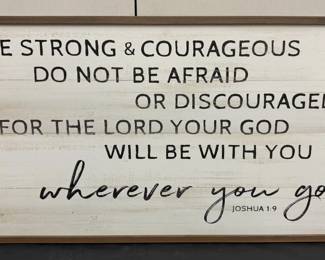 E STRONG & COURAGEOUS
DO NOT BE AFRAID
OR DISCOURAGED
FOR THE LORD YOUR GOD
WILL BE WITH YOU
wherever you go
JOSHUA 1:9